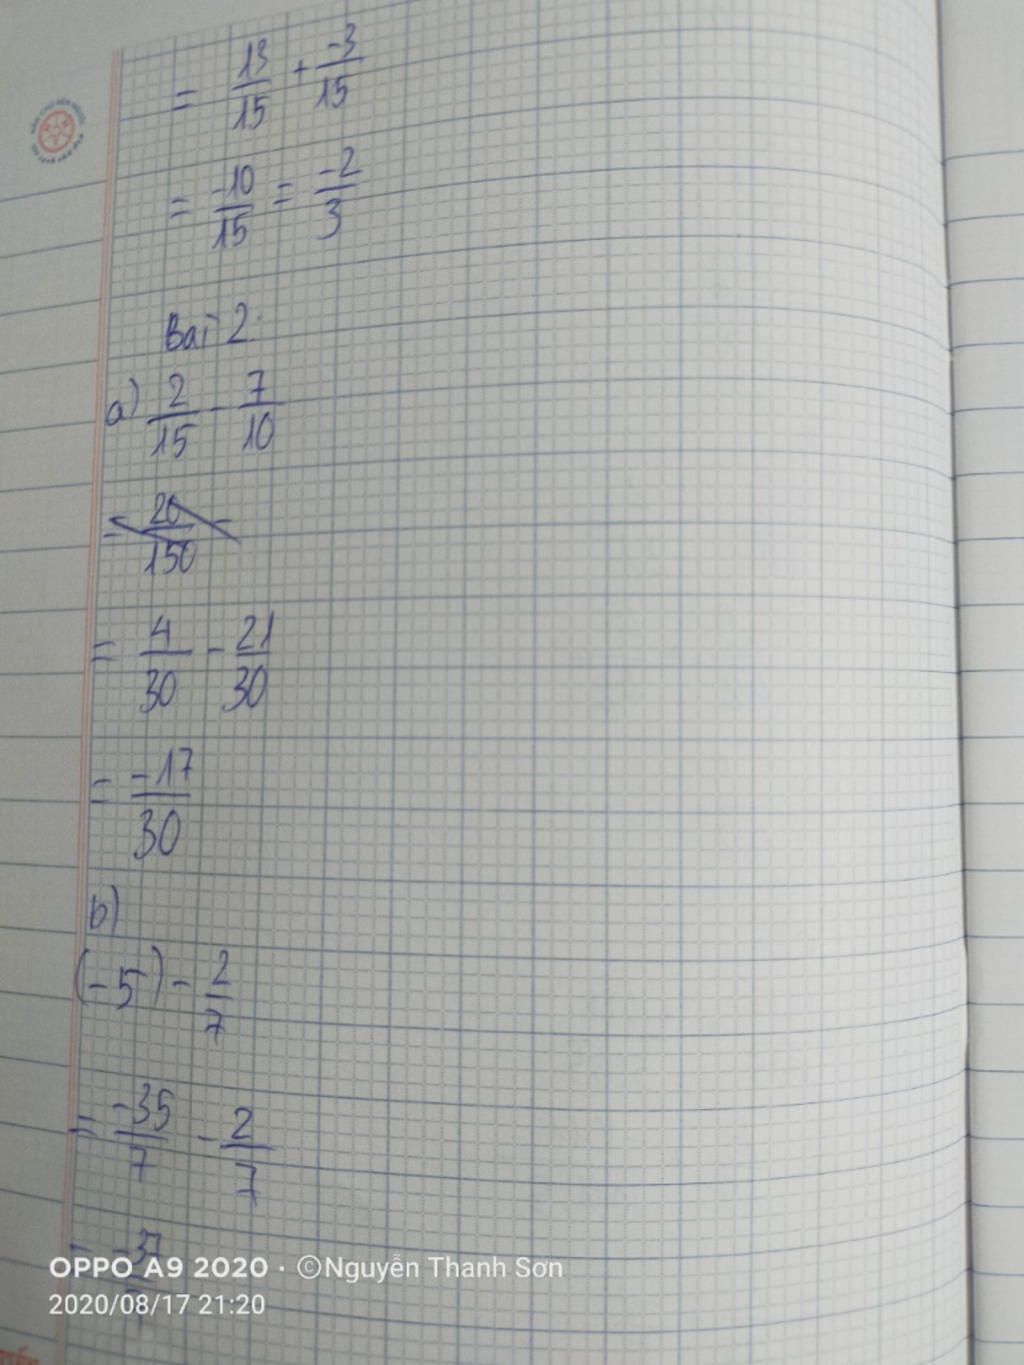 = 13/15 + -3/15
= -10/15 = -2/3
Bài 2:
a) 2/15 - 7/10
= 20/150 -
= 4/30 - 21/30
= -17/30
b)
(-5) - 2/7
= -35/7 - 2/7
= -37
OPPO A9 2020 · ©Nguyễn Thanh Sơn
2020/08/17 21:20